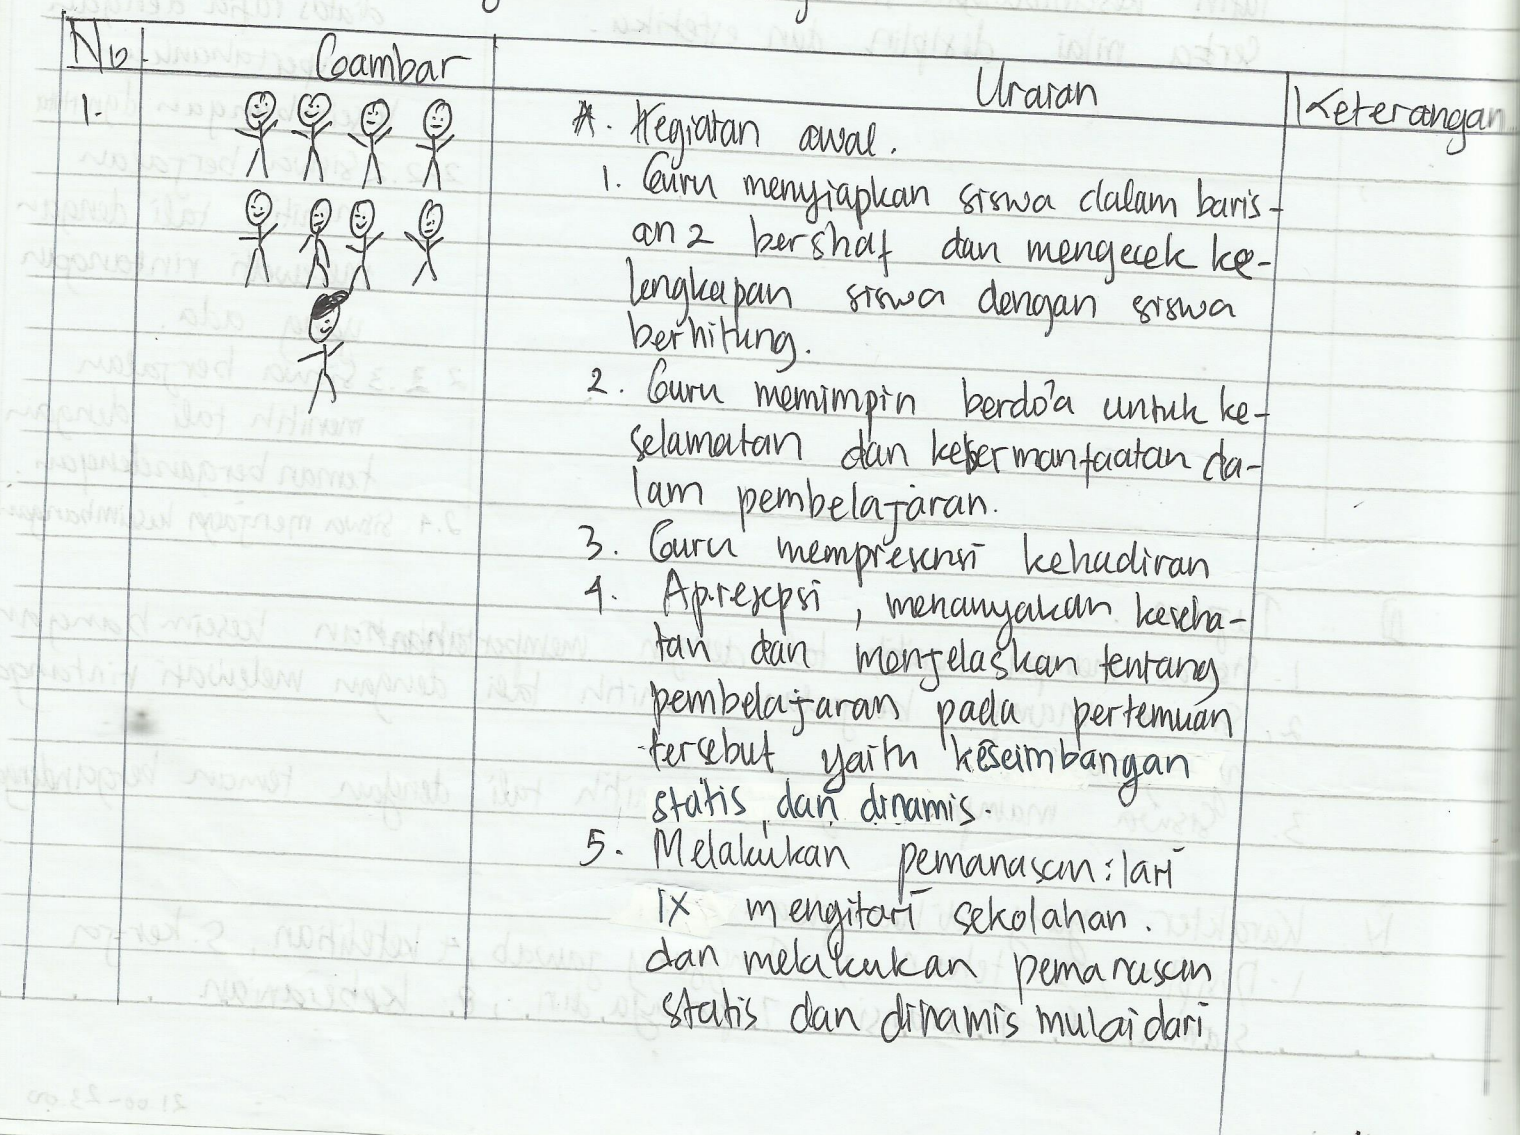 No
Gambar
Uraian
Keterangan
1.
A. Kegiatan awal.
1. Guru menyiapkan siswa dalam baris-
an 2 bershaf dan mengecek ke-
lengkapan siswa dengan siswa
berhitung.
2. Guru memimpin berdo'a untuk ke-
selamatan dan kebermanfaatan da-
lam pembelajaran.
3. Guru mempresensi kehadiran
4. Apresepsi, menanyakan keseha-
tan dan menjelaskan tentang
pembelajaran pada pertemuan
tersebut yaitu keseimbangan
statis dan dinamis.
5. Melakukan pemanasan : lari
1X mengitari sekolahan.
dan melakukan pemanasan
statis dan dinamis mulai dari